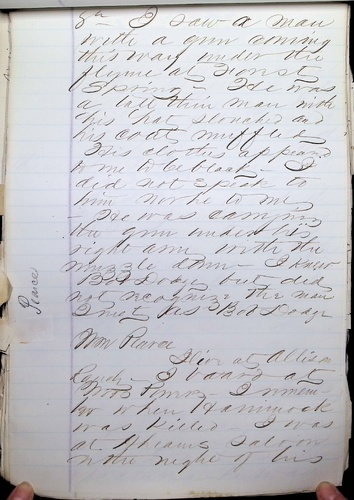 I saw a man
with a gun coming
this way under the
flyme at Forest
Spring - He was
a tall thin man with
his hat slouched and
his coat muffled
His clothes appeared
to me to be black - I
did not speak to
him nor he to me
- He was carrying
the gun under his
right arm with the
muzzle down - I knew
Bob Dodge but did
not recognize the man
I met as Bob Dodge
Pearce
Wm Pearce
I live at Allison
Ranch - I board at
I remem
ber when Hammock
was killed - I was
at Saloon
on the night of his